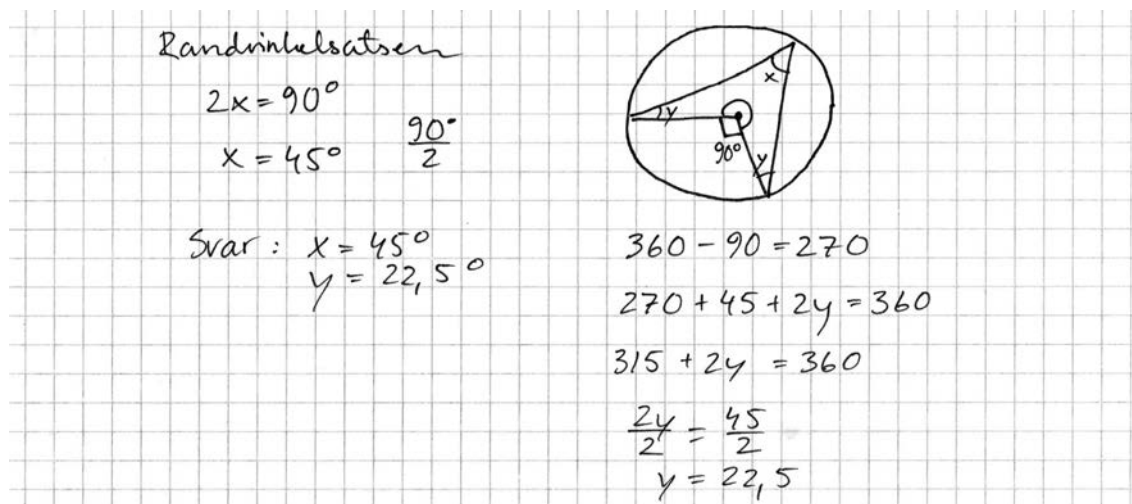 Randvinkelsatsen
2x = 90°
x = 45° 90°/2
Svar: x = 45°
y = 22,5°
x
y
90°
y
360 - 90 = 270
270 + 45 + 2y = 360
315 + 2y = 360
2y/2 = 45/2
y = 22,5